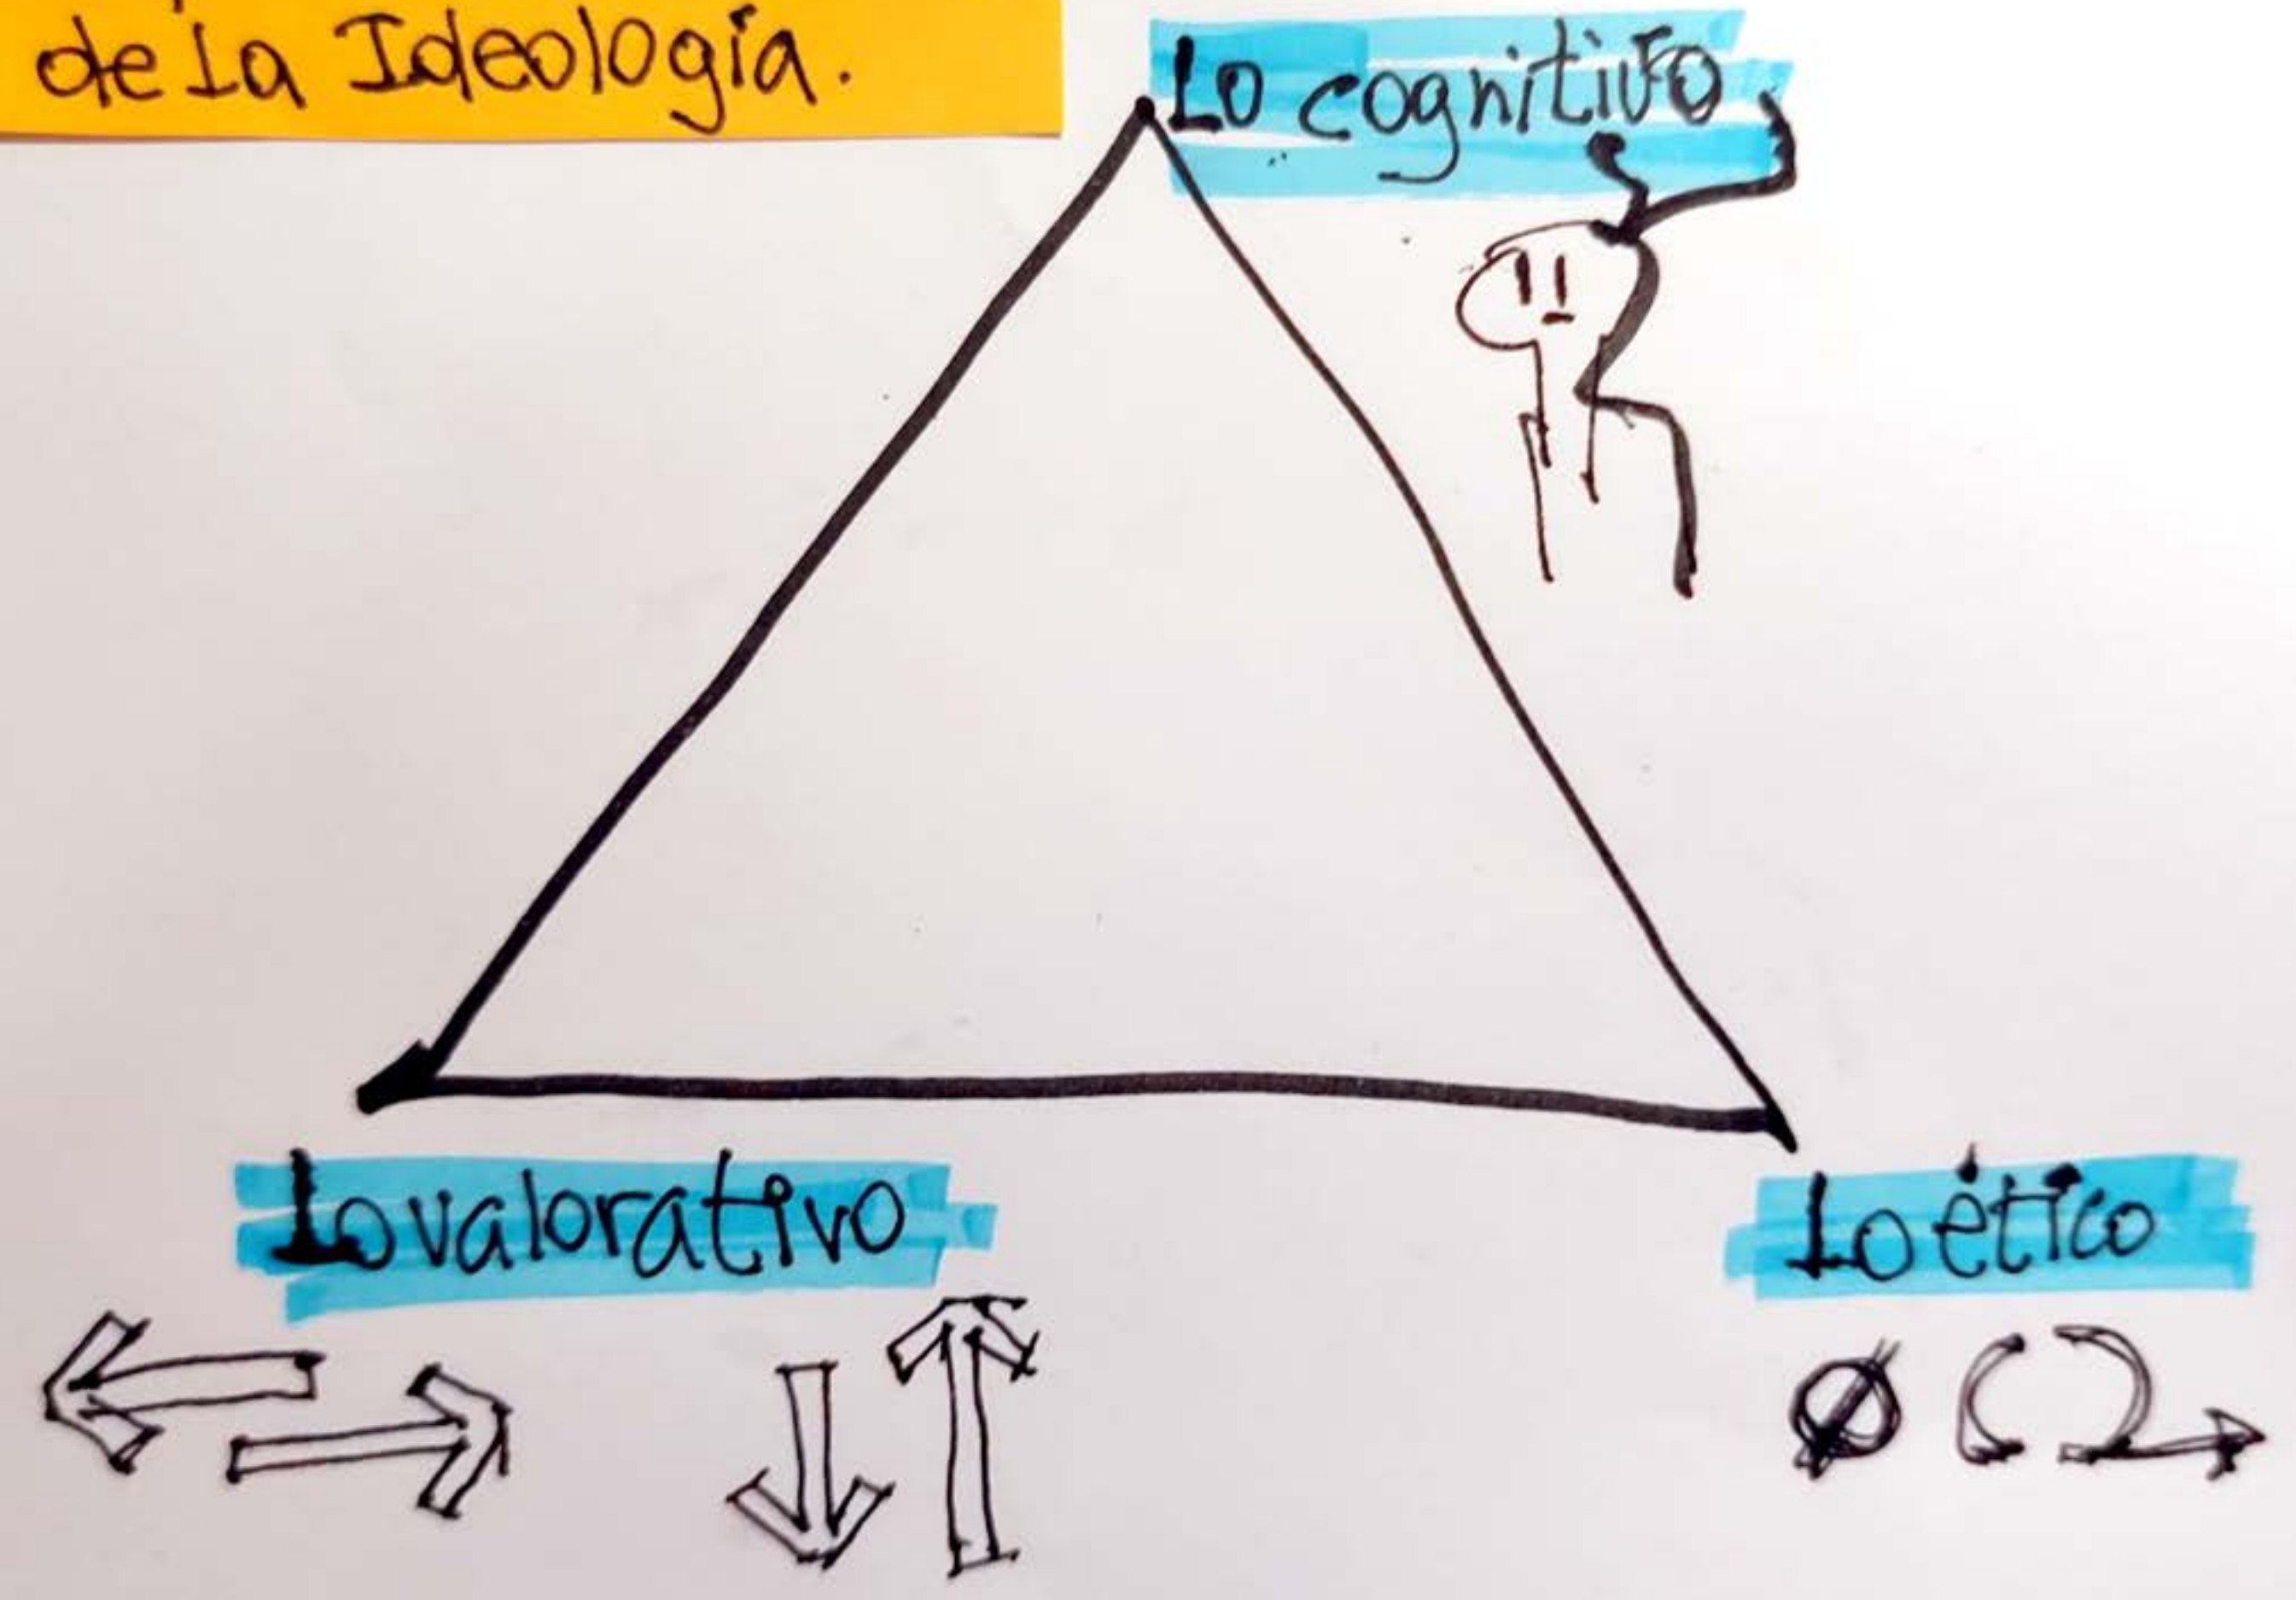 de la Ideología.
Lo cognitivo
Lo valorativo
Lo ético